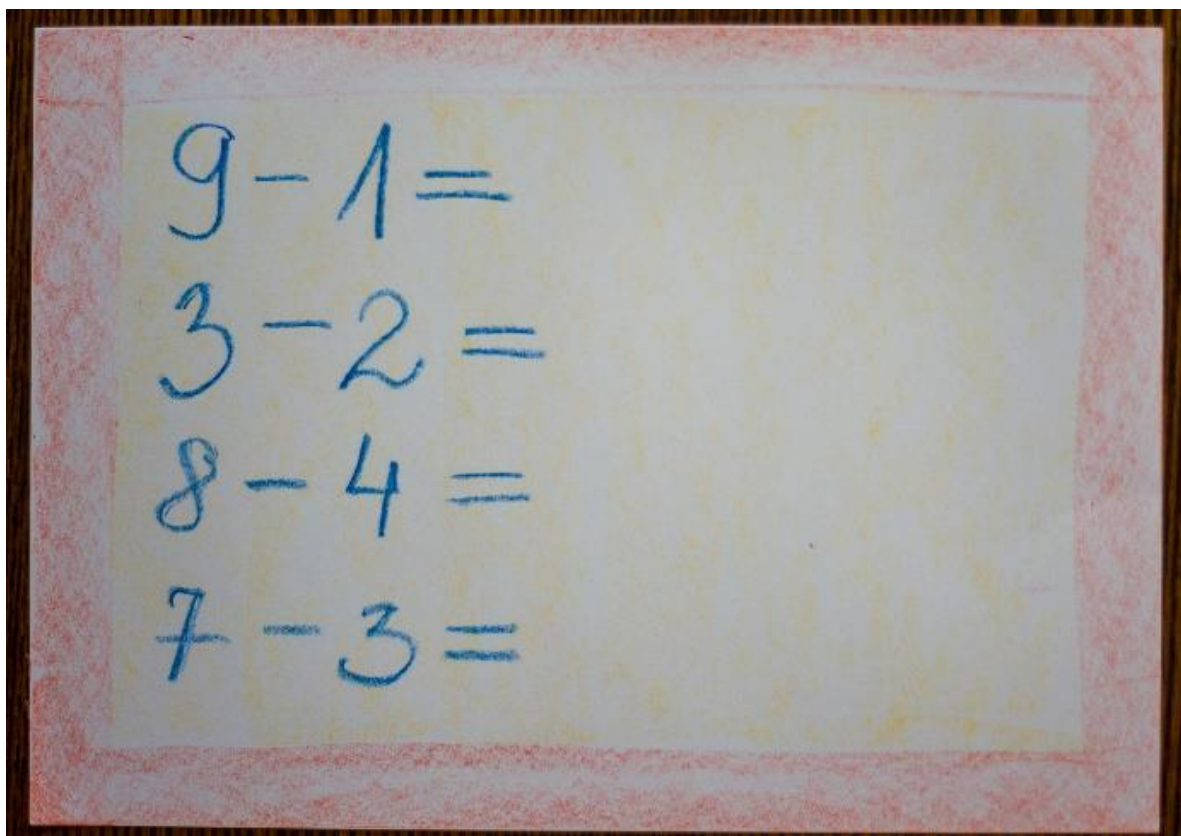 9 - 1 =
3 - 2 =
8 - 4 =
7 - 3 =